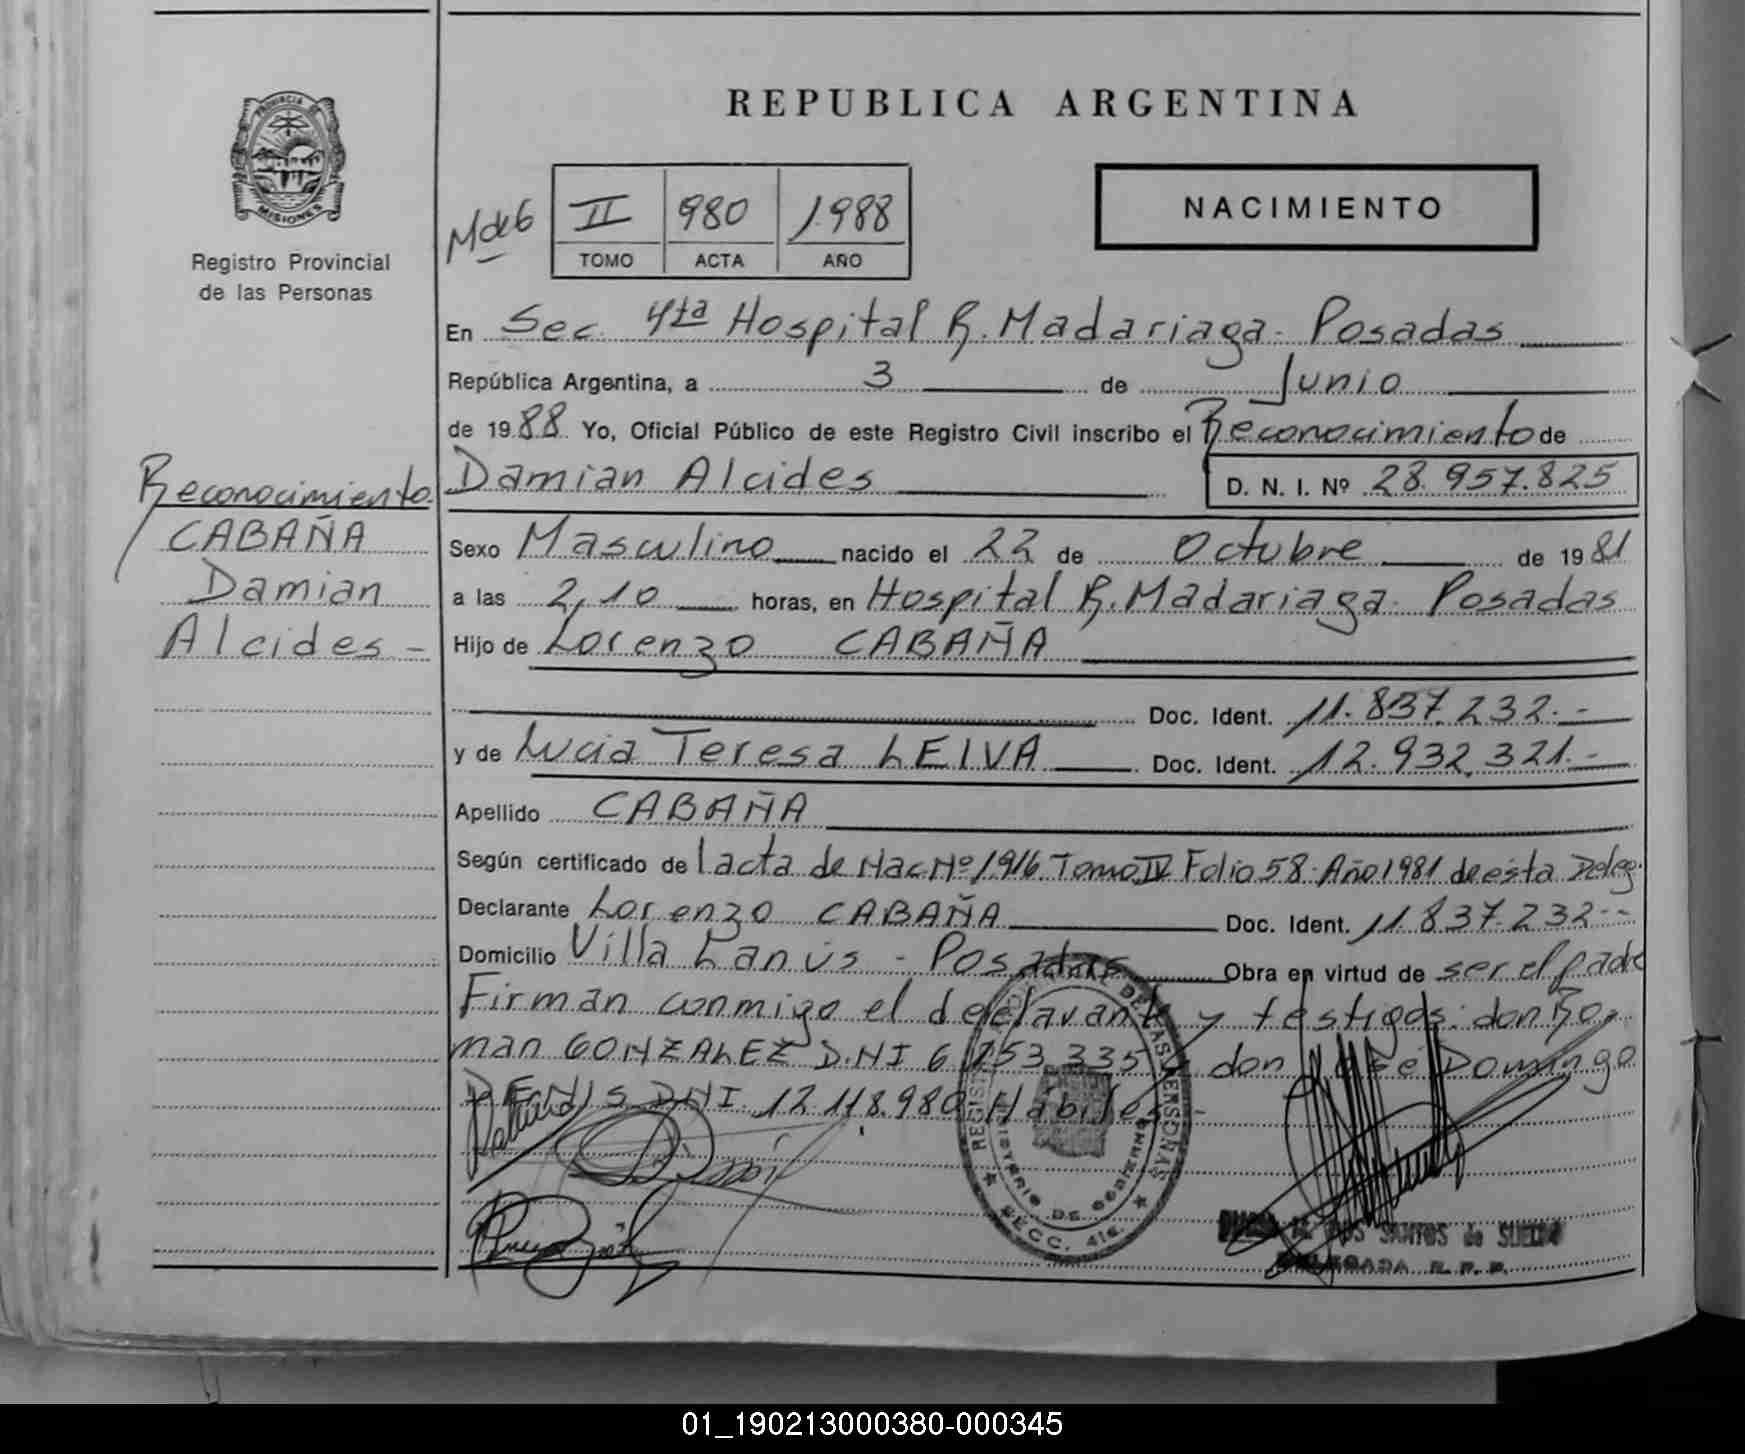 REPUBLICA ARGENTINA
PROVINCIA DE
MISIONES
Registro Provincial
de las Personas
NACIMIENTO
II 980 1988
TOMO ACTA AÑO
En Sec. 4ta Hospital R. Madariaga - Posadas
República Argentina, a 3 de Junio
de 1988 Yo, Oficial Público de este Registro Civil inscribo el Reconocimiento de
Damian Alcides D. N. I. Nº 28.957.825
Reconocimiento
CABAÑA
Damian
Alcides -
Sexo Masculino nacido el 22 de Octubre de 1981
a las 2,10 horas, en Hospital R. Madariaga - Posadas
Hijo de Lorenzo CABAÑA
Doc. Ident. 11.837.232.-
y de Lucia Teresa LEIVA Doc. Ident. 12.932.321.-
Apellido CABAÑA
Según certificado de l acta de Nac Nº 1916 Tomo IV Folio 58 Año 1981 de esta Deleg.
Declarante Lorenzo CABAÑA Doc. Ident. 11.837.232.--
Domicilio Villa Lanús - Posadas Obra en virtud de ser el padre
Firman conmigo el declarante y testigos: don Ro
man GONZALEZ D.N.I 6.253.335 don José Domingo
DENIS DNI 12.118.980 Habiles -
REGISTRO PROVINCIAL DE LAS PERSONAS
MINISTERIO DE GOBIERNO
SECC. 4ta
DOS SANTOS de SUELDO
DELEGADA R. P. P.
01_190213000380-000345